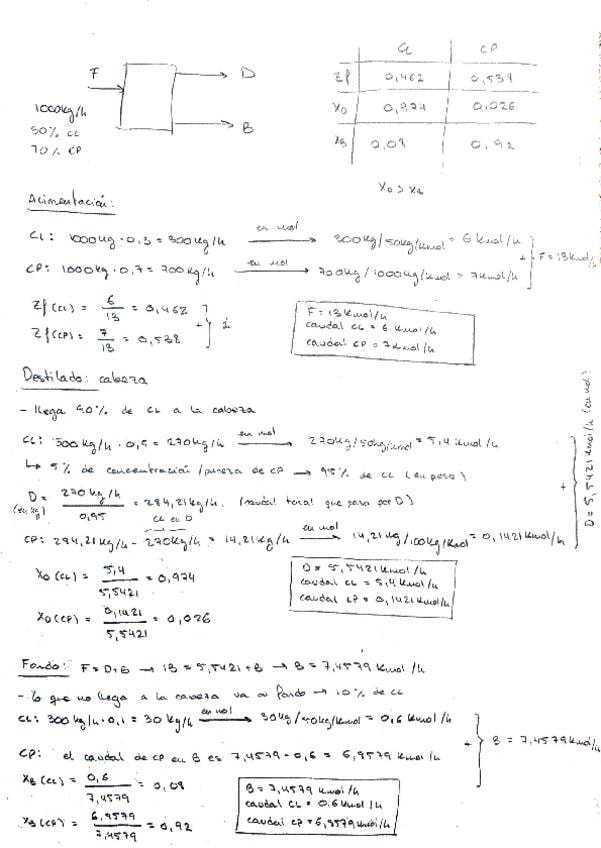 CL CP
F D
Zf 0,462 0,538
1000kg/h
XD 0,974 0,026
50% CL B
70% CP
XB 0,08 0,92
XD > XB
Alimentación:
CL: 1000kg · 0,3 = 300kg/h en mol 300kg/50kg/kmol = 6 kmol/h
F = 13kmol/h
CP: 1000kg · 0,7 = 700kg/h en mol 700kg/1000kg/kmol = 7kmol/h
Zf (CL) = 6/13 = 0,462
+ 1
Zf (CP) = 7/13 = 0,538
F = 13 kmol/h
caudal CL = 6 kmol/h
caudal CP = 7 kmol/h
Destilado: cabeza
- llega 90% de CL a la cabeza
CL: 300kg/h · 0,9 = 270kg/h en mol 270kg/50kg/kmol = 5,4 kmol/h
↳ 5% de concentración/pureza de CP → 95% de CL (en peso)
D = 270kg/h / 0,95 = 284,21kg/h. (caudal total que pasa por D)
(en kg)
CL en D
CP: 284,21kg/h - 270kg/h = 14,21kg/h en mol 14,21kg/100kg/kmol = 0,1421kmol/h
+ D = 5,5421 kmol/h (en mol)
XD (CL) = 5,4/5,5421 = 0,974
XD (CP) = 0,1421/5,5421 = 0,026
D = 5,5421 kmol/h
caudal CL = 5,4 kmol/h
caudal CP = 0,1421 kmol/h
Fondo: F = D+B → 13 = 5,5421 + B → B = 7,4579 kmol/h
- lo que no llega a la cabeza va al fondo → 10% de CL
CL: 300kg/h · 0,1 = 30kg/h en mol 30kg/50kg/kmol = 0,6 kmol/h
+ B = 7,4579kmol/h
CP: el caudal de CP en B es 7,4579 - 0,6 = 6,8579 kmol/h
XB (CL) = 0,6/7,4579 = 0,08
XB (CP) = 6,8579/7,4579 = 0,92
B = 7,4579 kmol/h
caudal CL = 0,6 kmol/h
caudal CP = 6,8579kmol/h